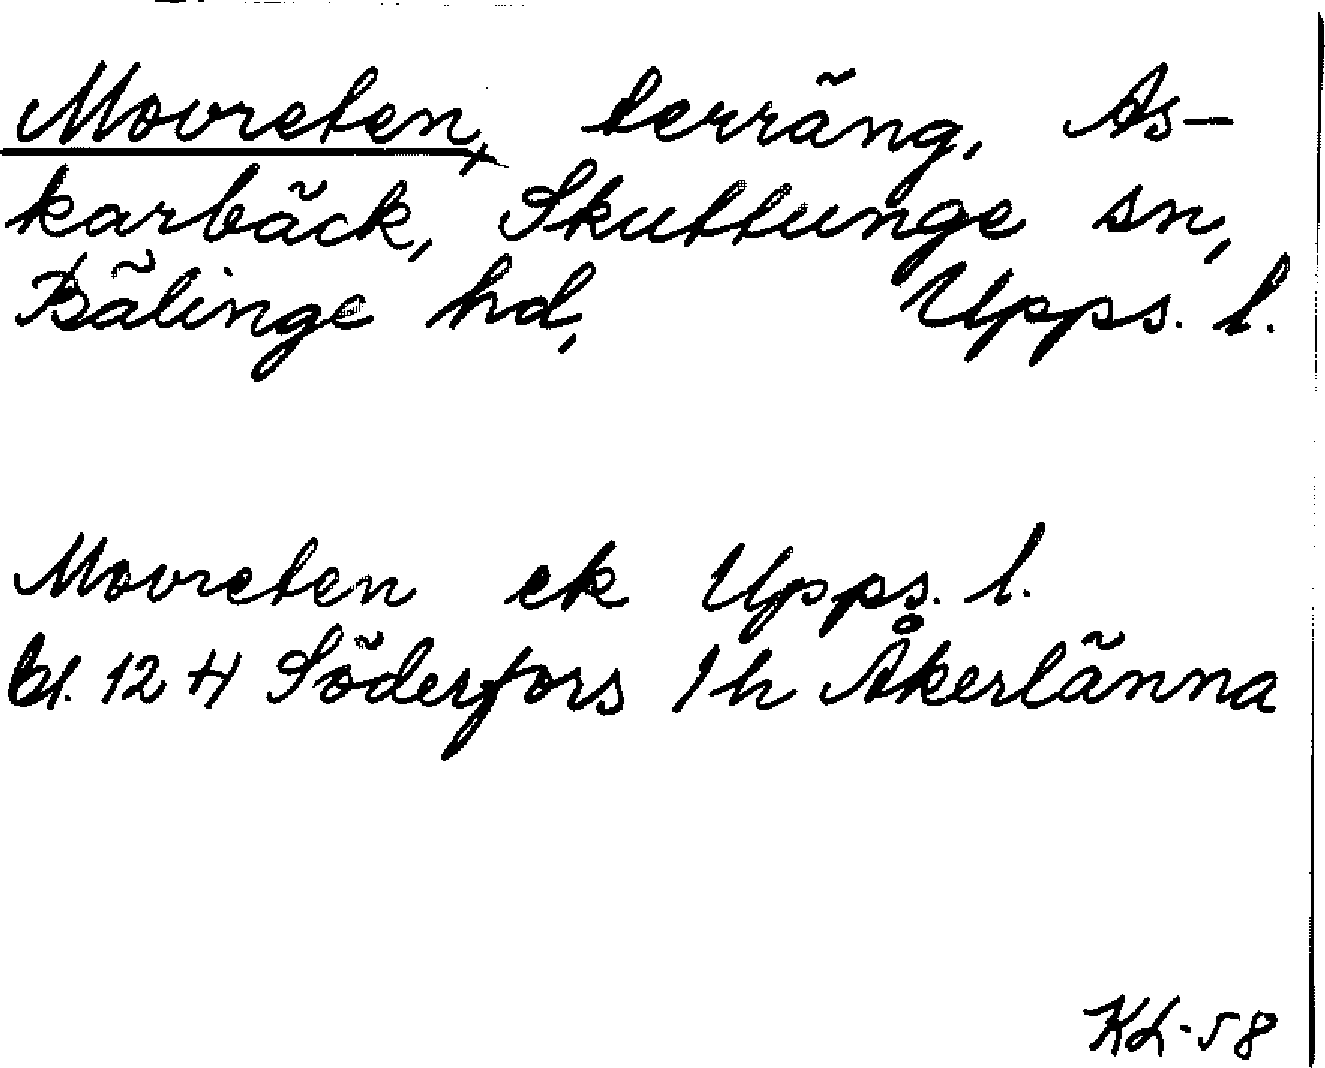 Movreten, terräng, As-
karbäck, Skuttunge sn,
Bälinge hd, Upps. l.
Movreten ek Upps. l.
bl. 12 H Söderfors 1 h Åkerlänna
KL-58